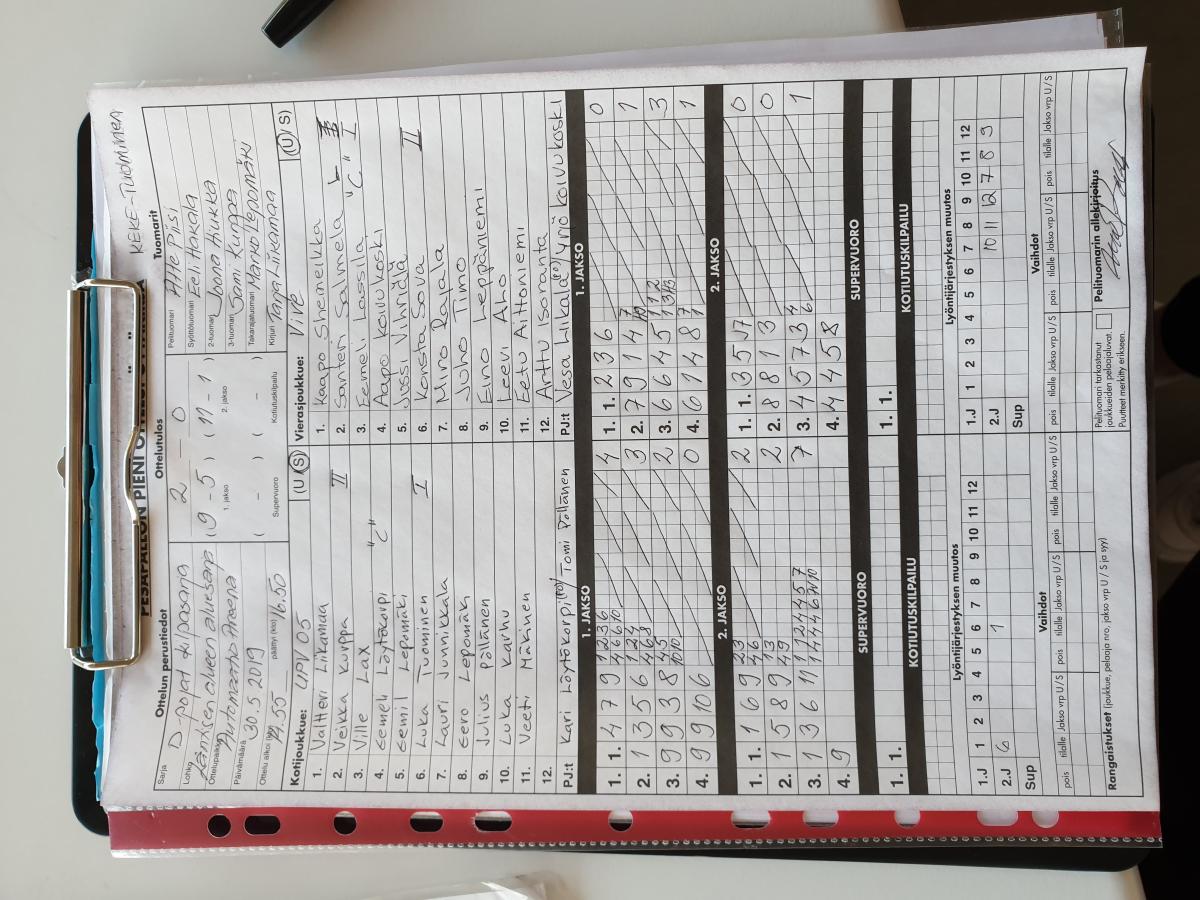 KEKE-TUOMINEN
PESÄPALLON PIENI
Ottelun perustiedot
Sarja D-pojat kilpasarja
Lohko Läntisen alueen aluesarja
Ottelupaikka Automaatio Areena
Päivämäärä 30.5.2019
Ottelu alkoi (klo) 14.55 päättyi (klo) 16.50
Ottelutulos
2 - 0
(9 - 5) (11 - 1)
1. jakso 2. jakso
( - ) ( - )
Supervuoro Kotiutuskilpailu
Tuomarit
Pelituomari Atte Piisi
Syöttötuomari Eeli Hakala
2-tuomari Joona Hiukka
3-tuomari Sami Kumpa
Takarajatuomari Marko Lepomäki
Kirjuri Tarja Liikamaa
Kotijoukkue: UPV 05 (U/S)
1. Valtteri Liikamaa
2. Veikka Kurppa II
3. Ville Lax
4. Eemeli Löytökorpi "C"
5. Eemil Lepomäki
6. Luka Tuominen I
7. Lauri Junnikkala
8. Eero Lepomäki
9. Julius Pöllänen
10. Luka Karhu
11. Veeti Mäkinen
12.
PJ:t Kari Löytökorpi (60) / Tomi Pöllänen
Vierasjoukkue: ViVe (U/S)
1. Kaapo Shemeikka
2. Santeri Salmela
3. Eemeli Lassila "C" I
4. Aapo Koivukoski
5. Jussi Vihriälä
6. Konsta Sova II
7. Miro Rajala
8. Juho Timo
9. Eino Leppäniemi
10. Leevi Aho
11. Eetu Aitoniemi
12. Arttu Isoranta
PJ:t Vesa Liikala (60) / Yrjö Koivukoski
1. JAKSO
1. 1. 4 7 9 4
2. 3 5 6 3
3. 9 3 8 2
4. 9 10 6 0
1. JAKSO
1. 1. 2 3 6 0
2. 7 9 1 4 1
3. 6 6 4 5 3
4. 6 1 4 8 1
2. JAKSO
1. 1. 1 6 9 2
2. 1 5 8 9 2
3. 1 3 6 11 7
4. 9
2. JAKSO
1. 1. 1 3 5 0
2. 8 8 1 3 0
3. 4 5 7 3 1
4. 4 4 5 8
SUPERVUORO
1. 1.
SUPERVUORO
1. 1.
KOTIUTUSKILPAILU
KOTIUTUSKILPAILU
Lyöntijärjestyksen muutos
1.J 1 2 3 4 5 6 7 8 9 10 11 12
2.J 6 1
Sup
Lyöntijärjestyksen muutos
1.J 1 2 3 4 5 6 7 8 9 10 11 12
2.J 10 11 12 7 8 9
Sup
Vaihdot
pois tilalle Jakso vrp U/S pois tilalle Jakso vrp U/S pois tilalle Jakso vrp U/S
Vaihdot
pois tilalle Jakso vrp U/S pois tilalle Jakso vrp U/S pois tilalle Jakso vrp U/S
Rangaistukset (joukkue, pelaaja nro, jakso vrp U / S ja syy)
Pelituomari tarkastanut joukkueiden pelaajaluvat.
Puutteet merkitty erikseen.
Pelituomarin allekirjoitus